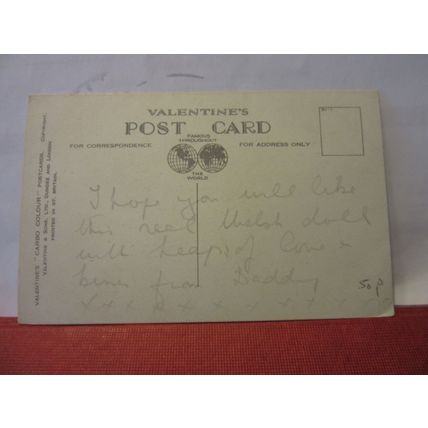 VALENTINE'S
POST CARD
FAMOUS
THROUGHOUT
FOR CORRESPONDENCE
FOR ADDRESS ONLY
THE
WORLD
I hope you will like
this real Welsh doll
with heaps of love &
kisses from Daddy
x x x x x x x x x x x
50p
VALENTINE'S "CARBO COLOUR" POSTCARDS. COPYRIGHT.
VALENTINE & SONS, LTD., DUNDEE AND LONDON
PRINTED IN GT. BRITAIN.